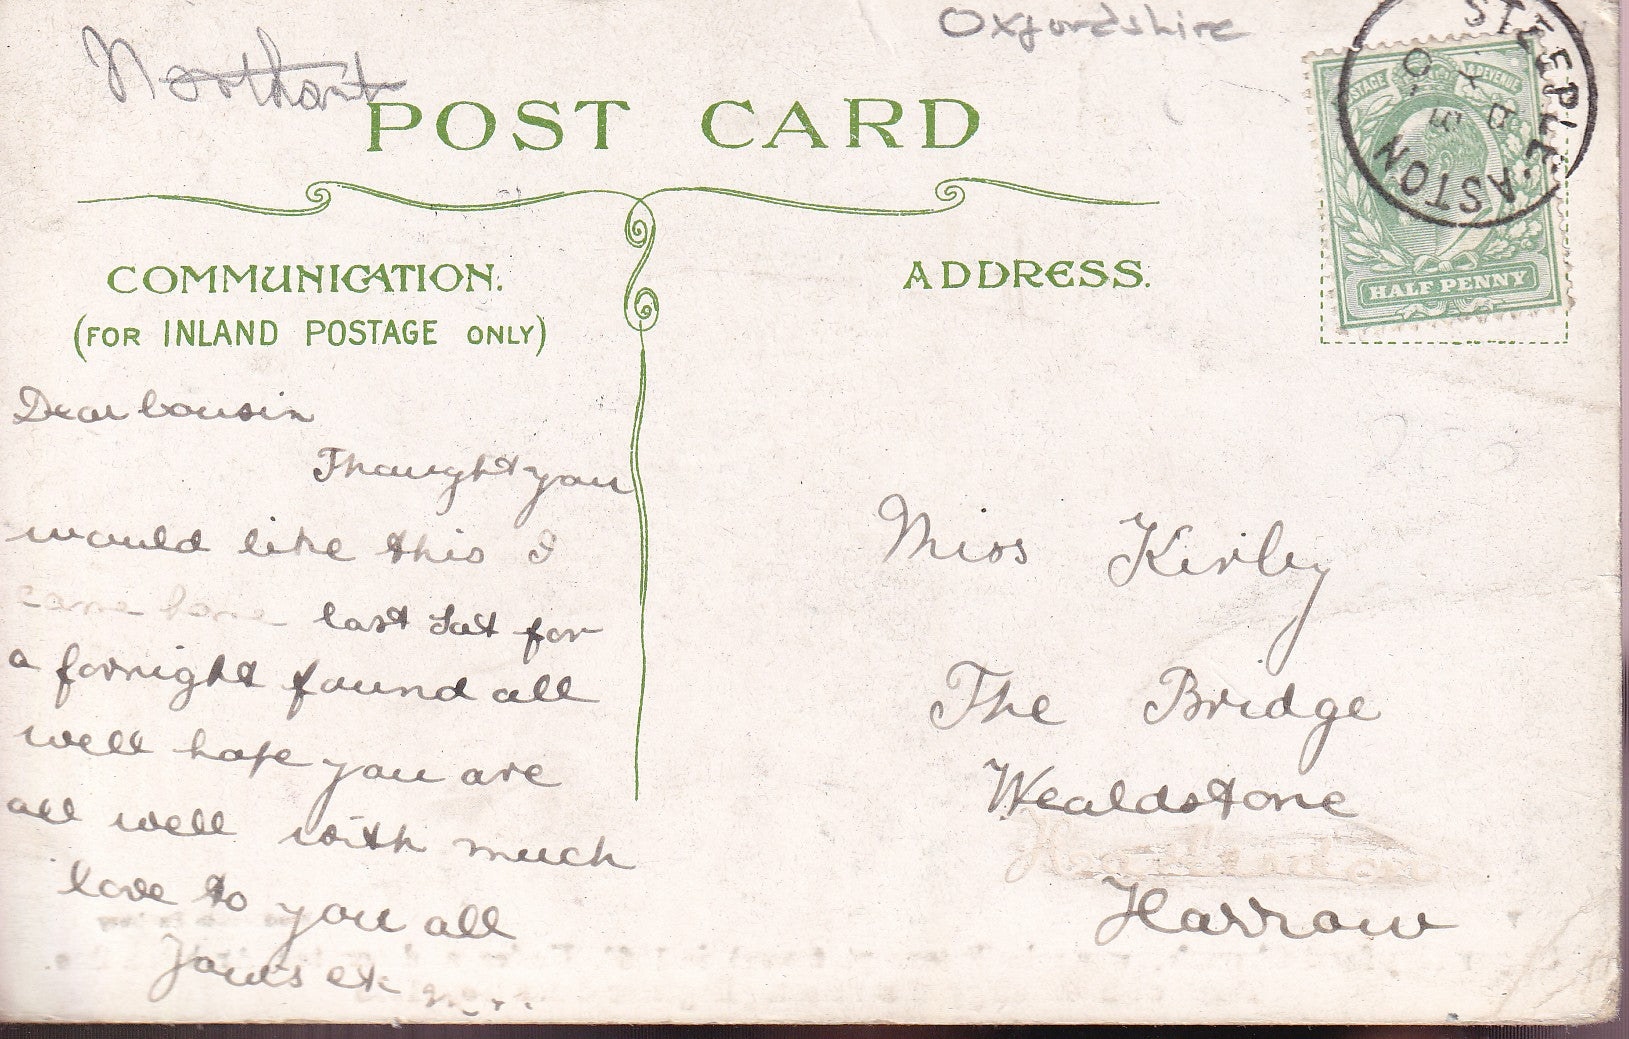 Northant
Oxfordshire
POST CARD
STEEPLE ASTON
POSTAGE & REVENUE
HALF PENNY
COMMUNICATION.
(FOR INLAND POSTAGE ONLY)
ADDRESS.
Dear Cousin
Thought you
would like this I
came home last Sat for
a fornight found all
well hope you are
all well with much
love to you all
Yours etc
Miss Kirby
The Bridge
Wealdstone
Harrow